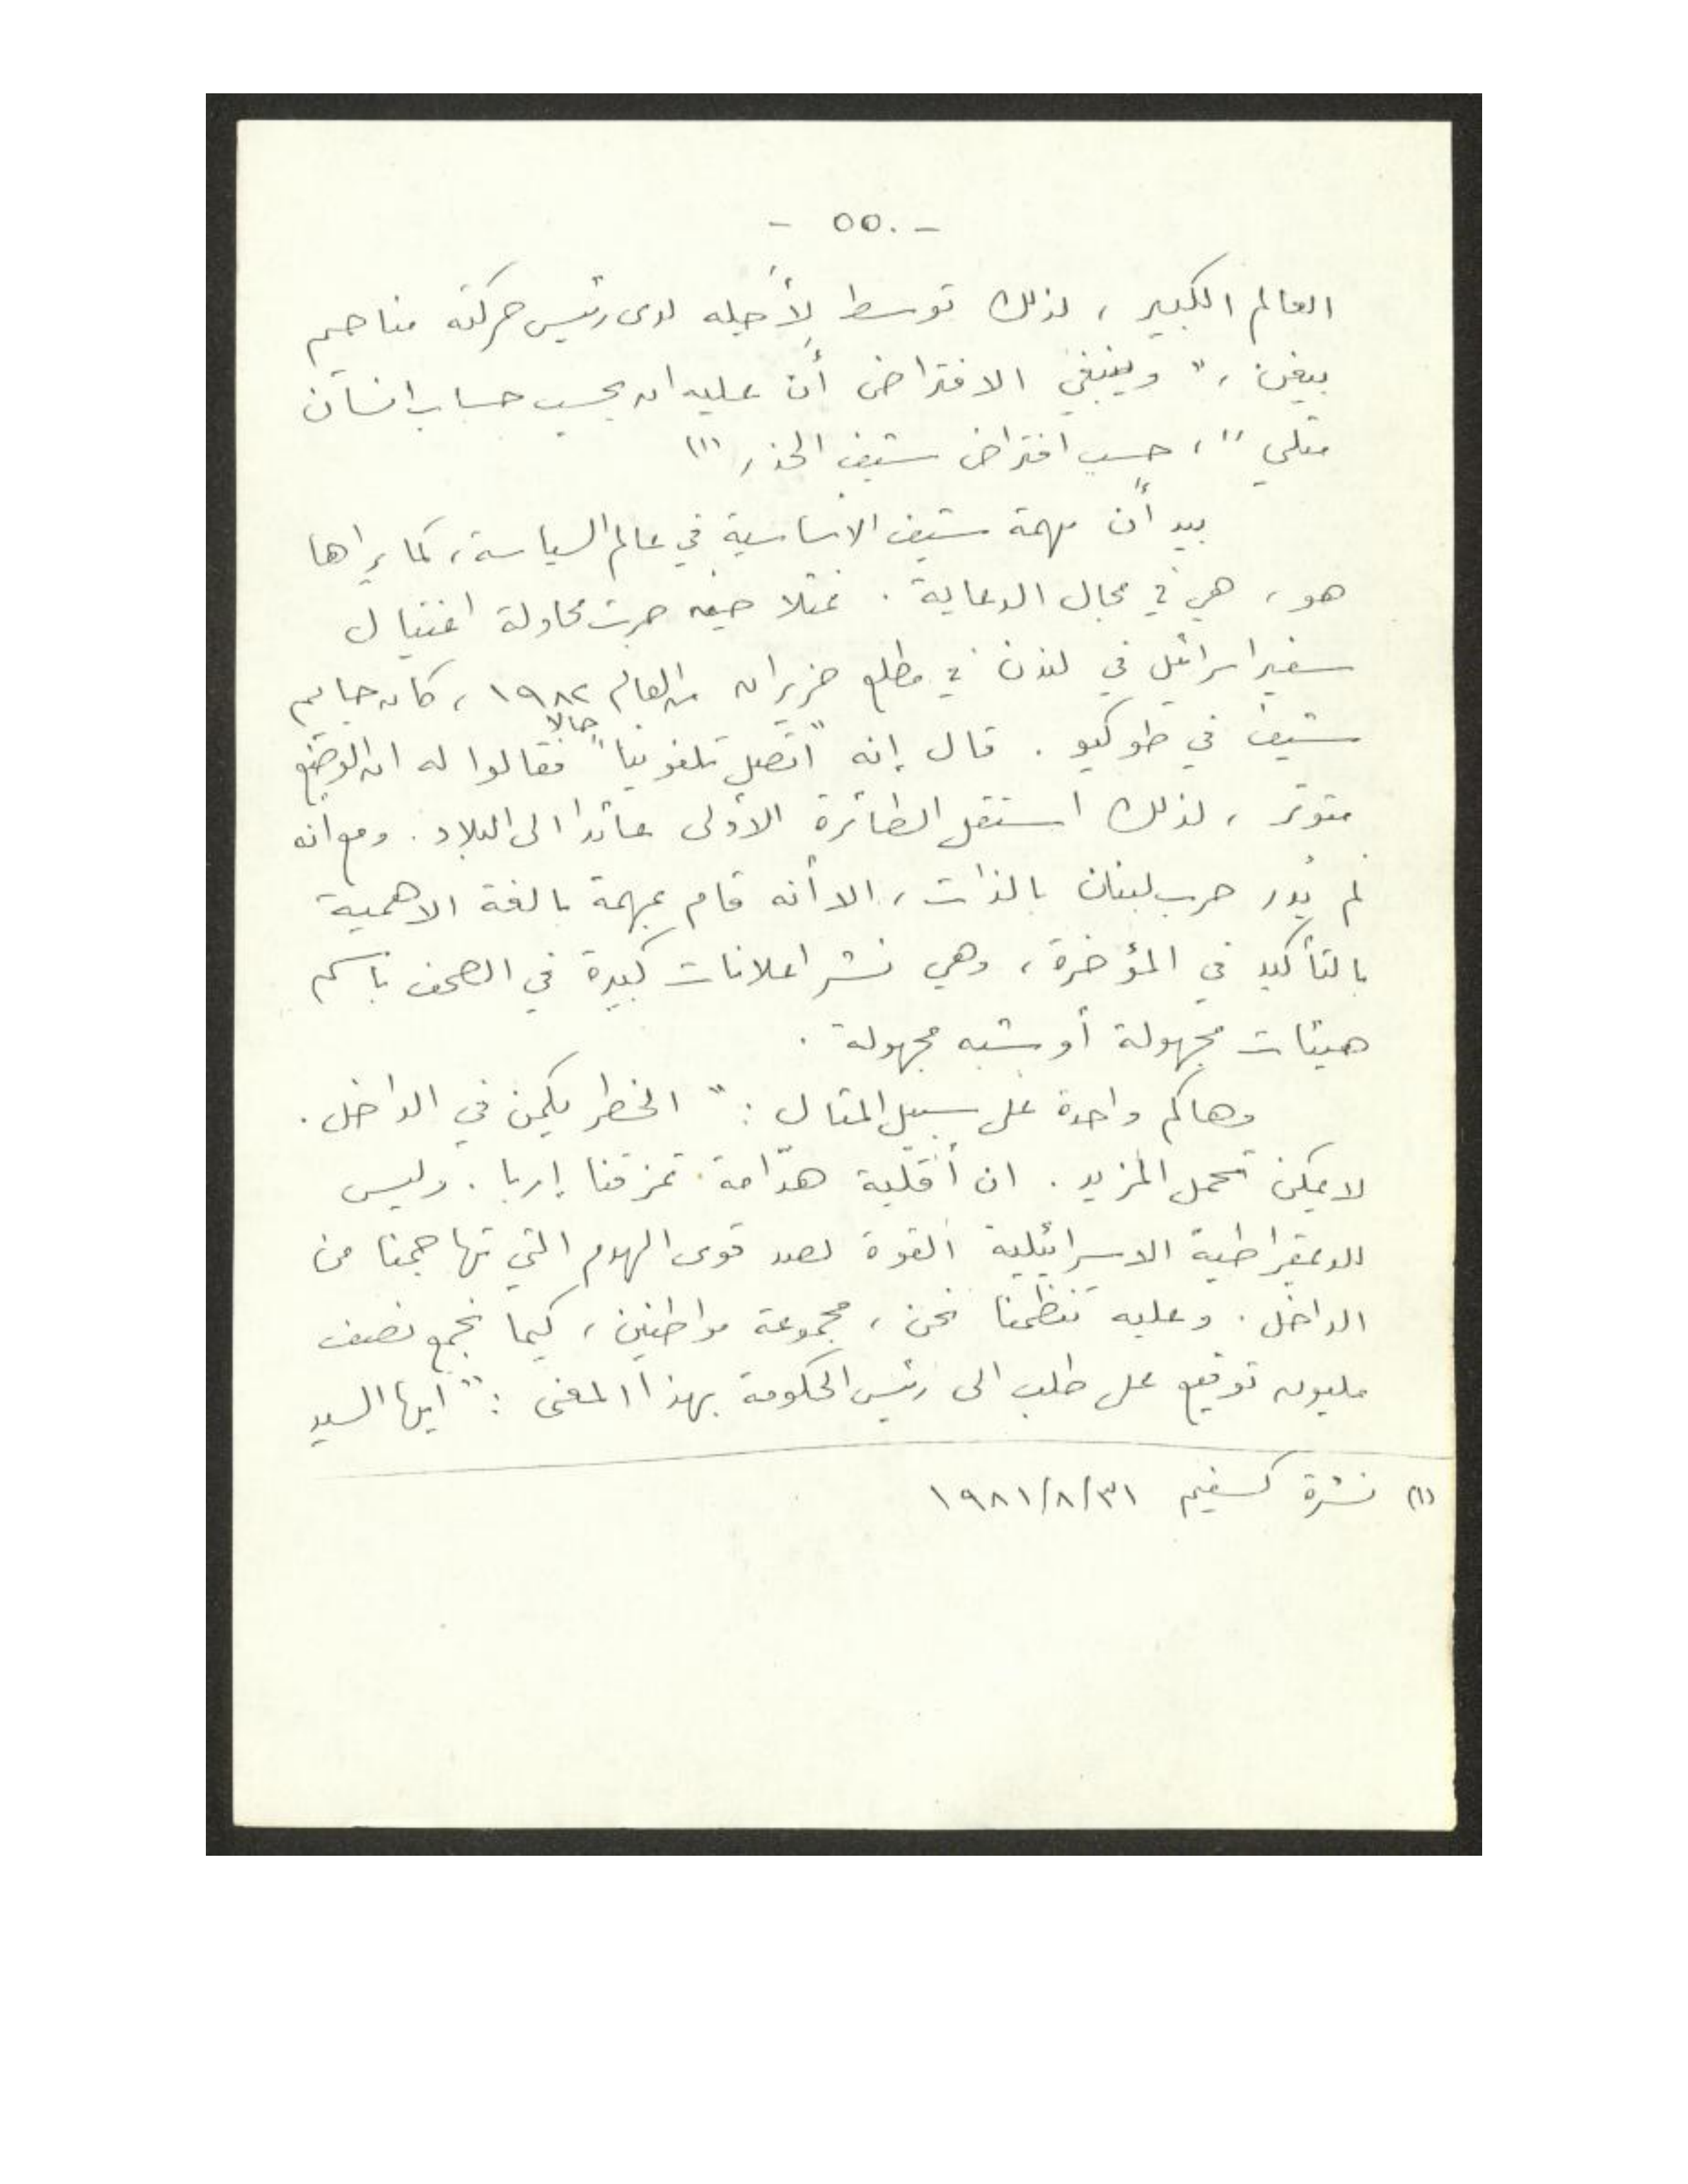 - ٥٥٠ -
العالم الكبير ، لذلك توسط لأجله لدى رئيس حركته مناحيم
بيغن ، " وينبغي الافتراض أن عليه ان يحسب حساب انسان
مثلي " ، حسب افتراض ستيف الحذر (١)
بيد أن مهمة ستيف الاساسية في عالم السياسة ، كما يراها
هو ، هي في مجال الدعاية . فمثلا حين جرت محاولة اغتيال
سفير اسرائيل في لندن في مطلع حزيران من العام ١٩٨٢ ، كان حاييم
ستيف في طوكيو . قال إنه " اتصل تلفونيا " حالا فقالوا له ان الوضع
متوتر ، لذلك استقل الطائرة الأولى عائدا الى البلاد . ومع أنه
لم يُدر حرب لبنان بالذات ، الا أنه قام بمهمة بالغة الاهمية
بالتأكيد في المؤخرة ، وهي نشر اعلانات كبيرة في الصحف باسم
هيئات مجهولة أو شبه مجهولة .
وهاكم واحدة على سبيل المثال : " الخطر يكمن في الداخل .
لا يمكن تحمل المزيد . ان أقلية هدّامة تمزقنا إربا . وليس
للديمقراطية الاسرائيلية القوة لصد قوى الهدم التي تهاجمنا من
الداخل . وعليه تنظمنا نحن ، مجموعة مواطنين ، كيما نجمع نصف
مليون توقيع على طلب الى رئيس الحكومة بهذا المعنى : " ايها السيد
(١) نشرة كسفيم ٣١/٨/١٩٨١